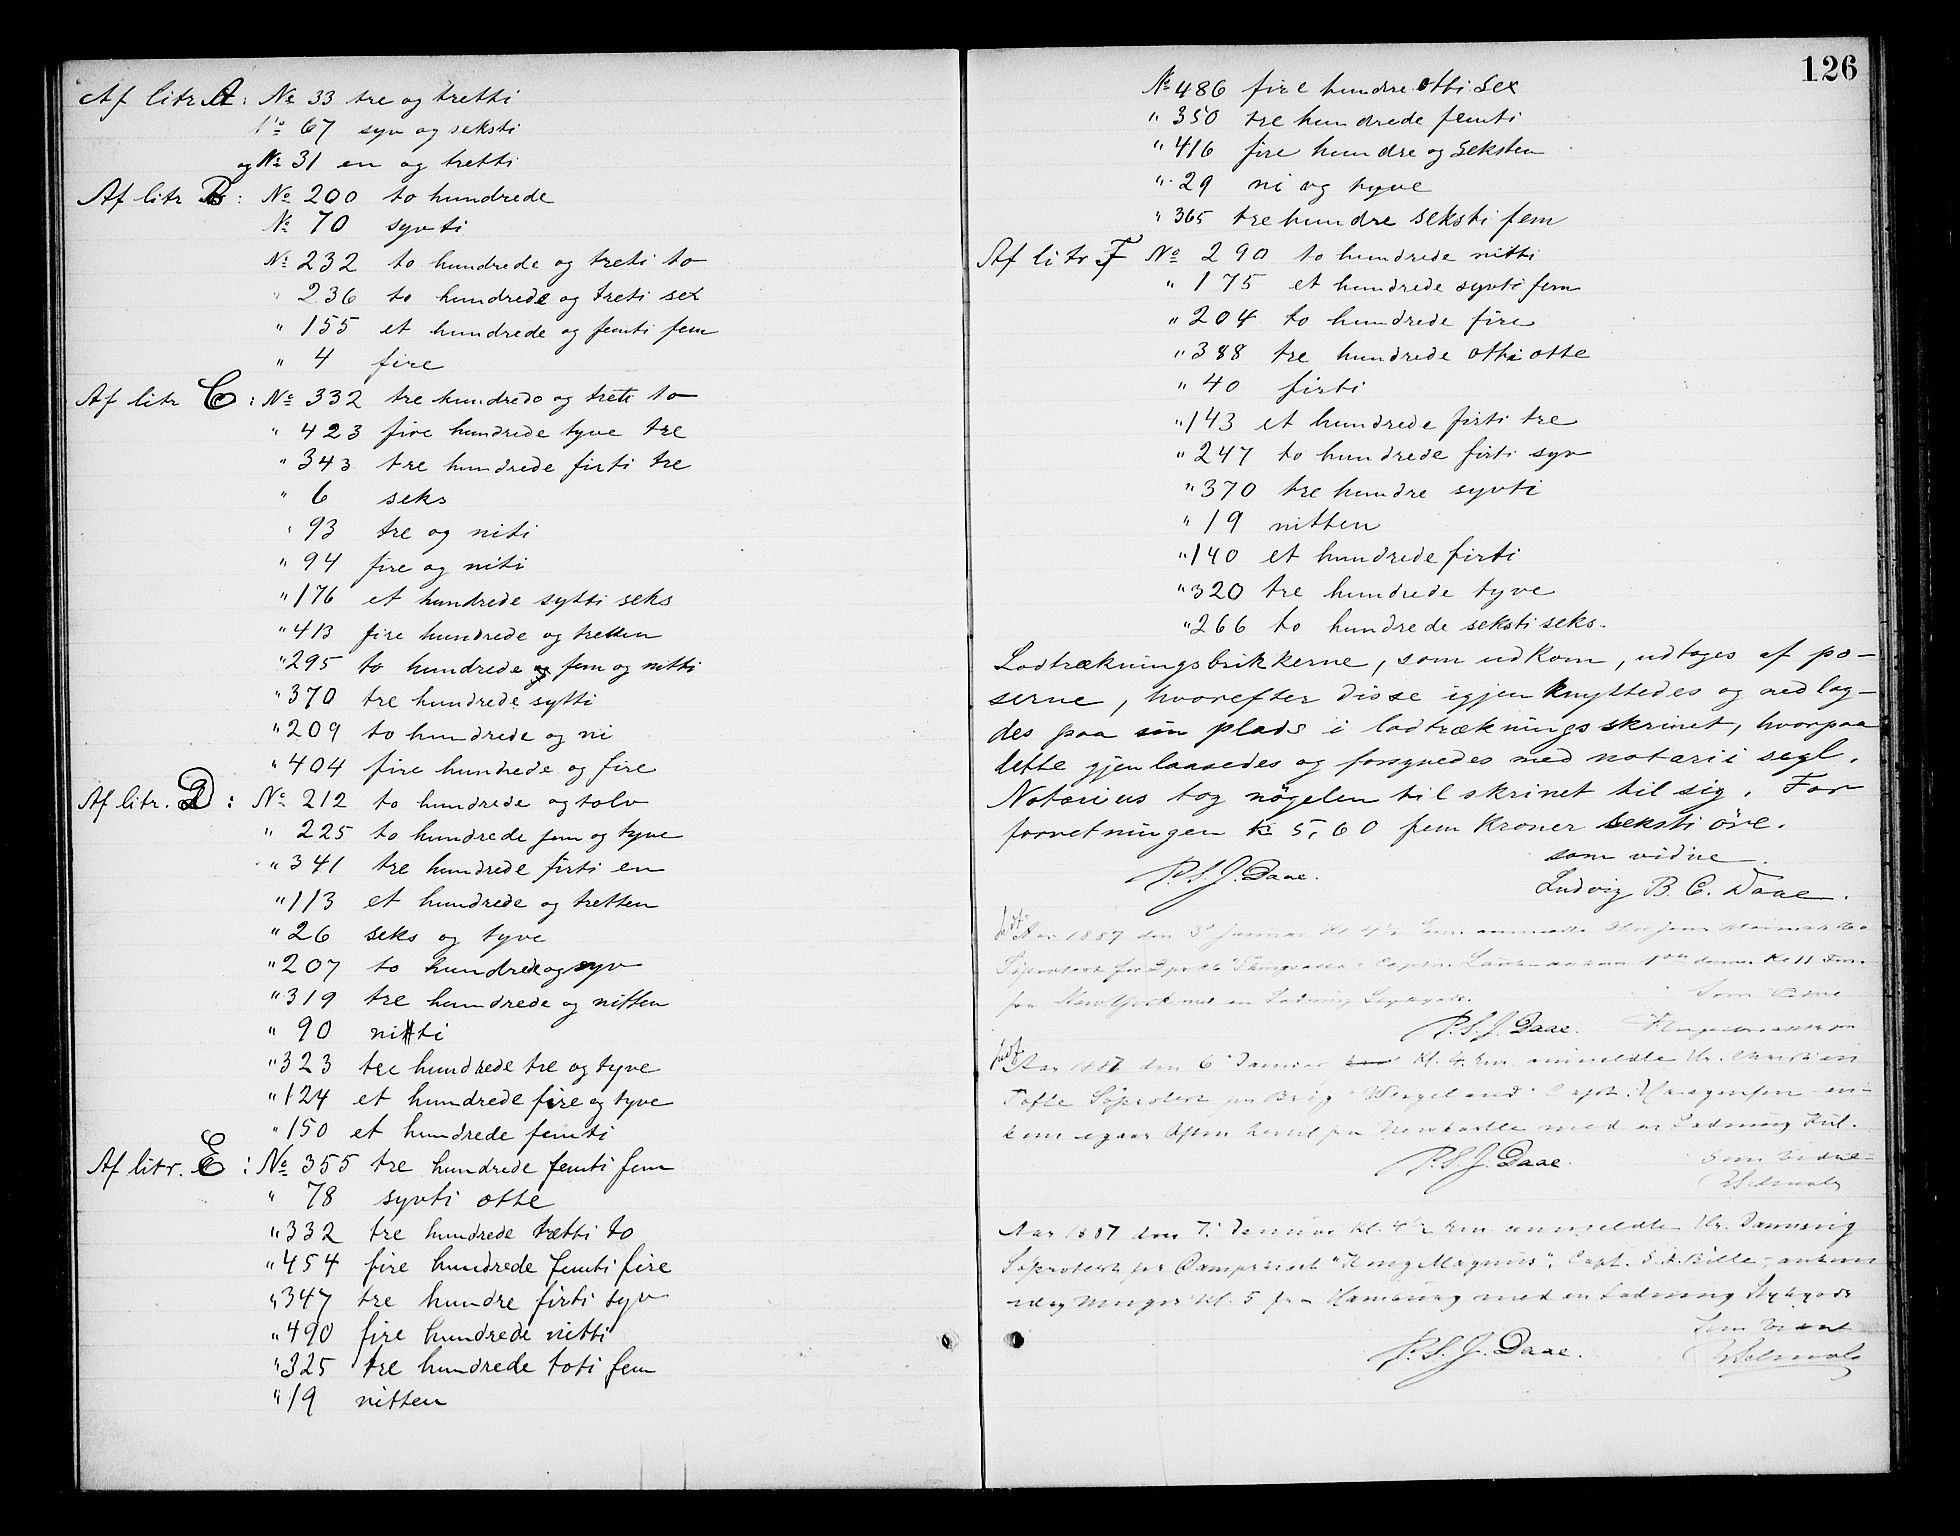 Af litr A: No 33 tre og tretti
No 67 syv og seksti
og No 31 en og tretti
Af litr B: No 200 to hundrede
No 70 sytti
No 232 to hundrede og treti to
236 to hundrede og treti sex
" 155 et hundrede og femti fem
" 4 fire
Af litr C: No 332 tre hundrede og treti to
" 423 fire hundrede tyve tre
" 343 tre hundrede firti tre
" 6 seks
" 93 tre og niti
" 94 fire og niti
" 176 et hundrede sytti seks
" 413 fire hundrede og tretten
" 295 to hundrede og fem og nitti
" 370 tre hundrede sytti
" 209 to hundrede og ni
" 404 fire hundrede og fire
Af litr. D: No 212 to hundrede og tolv
" 225 to hundrede fem og tyve
" 341 tre hundrede firti en
" 113 et hundrede og tretten
" 26 seks og tyve
" 207 to hundrede og syv
" 319 tre hundrede og nitten
" 90 nitti
" 323 tre hundrede tre og tyve
" 124 et hundrede fire og tyve
" 150 et hundrede femti
Af litr. E: No 355 tre hundrede femti fem
" 78 syvti otte
" 332 tre hundrede trætti to
" 454 fire hundrede femti fire
" 347 tre hundre firti syv
" 490 fire hundrede nitti
" 325 tre hundrede toti fem
" 19 nitten
126
No 486 fire hundre otti sex
" 350 tre hundrede femti
" 416 fire hundre og seksten
" 29 ni og tyve
" 365 tre hundre seksti fem
Af litr F No 290 to hundrede nitti
" 175 et hundrede syvti fem
" 204 to hundrede fire
" 388 tre hundrede otti otte
" 40 firti
" 143 et hundrede firti tre
" 247 to hundrede firti syv
" 370 tre hundre syvti
" 19 nitten
" 140 et hundrede firti
" 320 tre hundrede tyve
" 266 to hundrede seksti seks.
Lodtrækningsbrikkerne, som udkom, udtoges af po-
serne, hvorefter disse igjen knyttedes og nedlag-
des paa sin plads i lodtrækningsskrinet, hvorpaa
dette gjenlaasedes og forsynedes med notarii segl.
Notarius tog nøgelen til skrinet til sig. For
forretningen kr 5,60 fem kroner seksti öre.
som vidne.
P.S.J. Daae. Ludvig B. C. Daae.
Aar 1887 den 3d Januar Kl. 4½ Em. anmeldte
Søprotest for Capt. ankom Kl 11
fra New York med en Ladning Stykgods.
Som Vidne
P.S.J. Daae.
Aar 1887 den 6' Januar Kl. 4 Em. anmeldte Hr. Christian
Tofte Søprotest for Brig "Wergeland" Capt. an-
kom igaar Aften hertil fra Newcastle med en Ladning Kul.
P.S.J. Daae. Som Vidne
Aar 1887 den 7. Januar Kl. 4½ Em anmeldte Hr. Dannevig
Søprotest for Dampskibet "Kong Magnus", Capt. Bille, ankom
idag Morges Kl. 5 fra Hamburg med en Ladning Stykgods
Som Vidne
P.S.J. Daae.